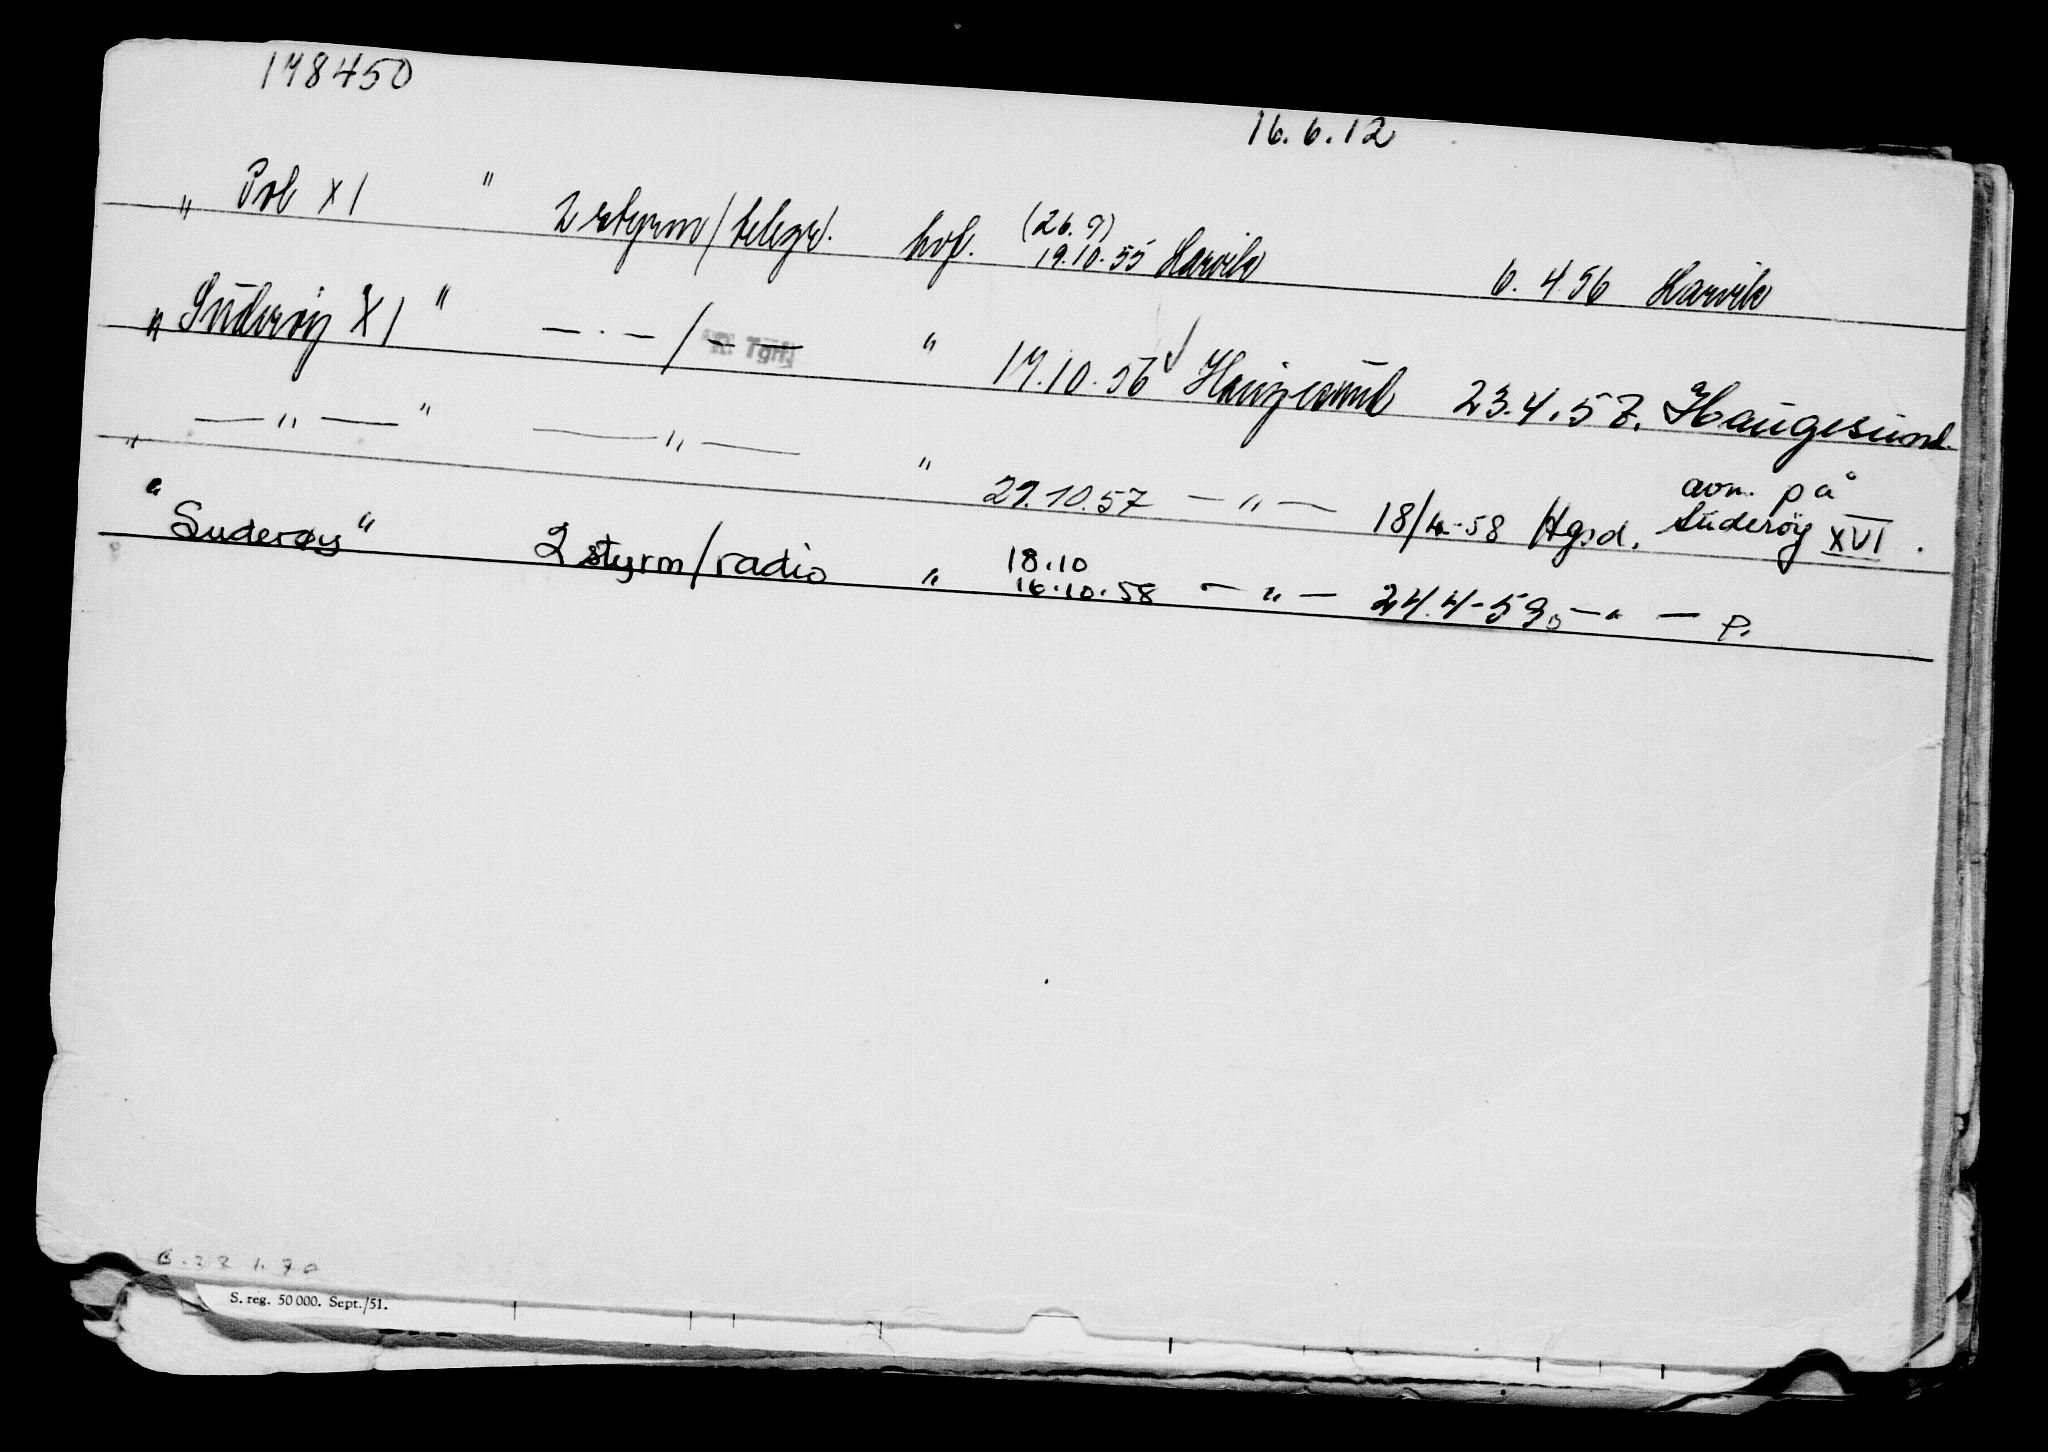 178450
16.6.12
„ Pol XI " 2 styrm/telegr. hvf. (26.9) 19.10.55 Larvik 6.4.56 Larvik
„ Suderøy XI " — · — / — — " 17.10.56 Haugesund 23.4.57. Haugesund.
„ — „ — " — „ — " 29.10.57 — „ — 18/4-58 Hgsd. avm. på Suderøy XVI.
" Suderøy " 2 styrm/radio „ 18.10 16.10.58 — „ — 24.4-59 — " — P.
S. reg. 50 000. Sept./51.